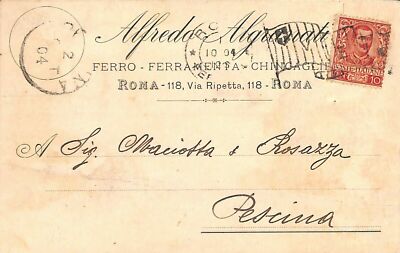 Alfredo Algranati
FERRO - FERRAMENTA - CHINCAGLIE
ROMA - 118, Via Ripetta, 118 - ROMA
10 04
2
04
POSTE ITALIANE
10
A Sig. Maciotta e Rosazza
Pescina